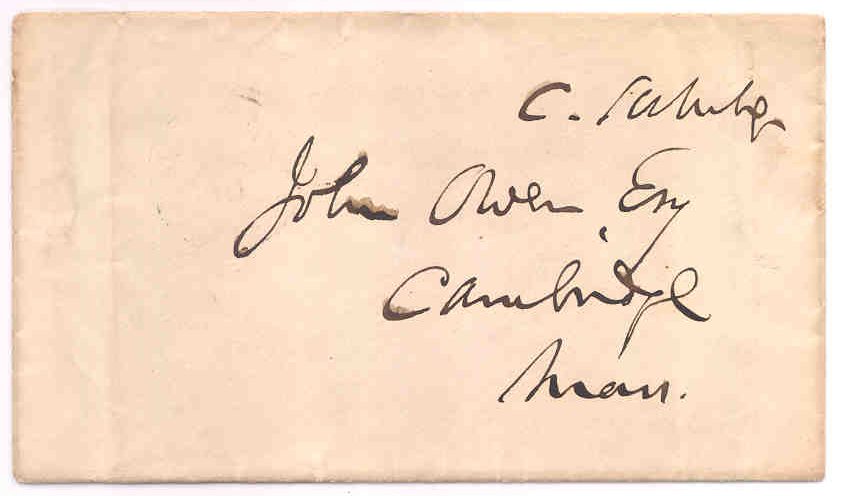 C.
John Owen Esq
Cambridge
Mass.